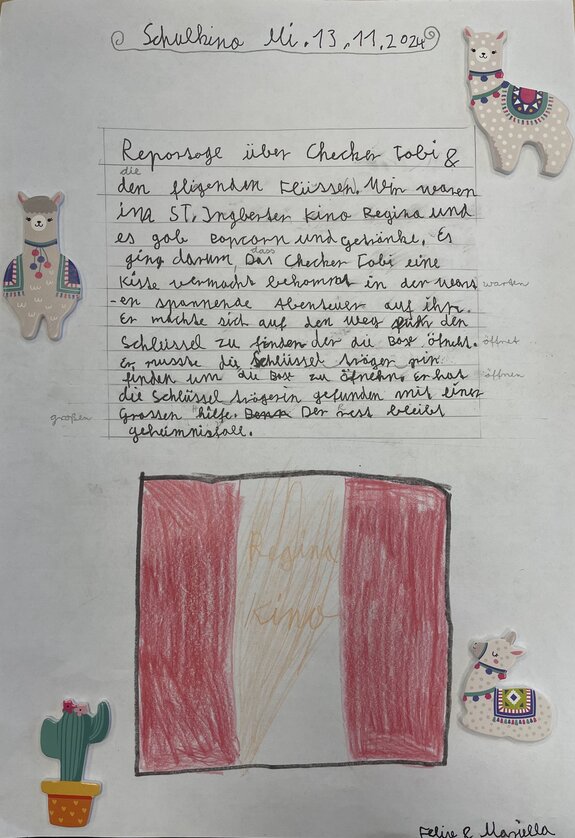 Schulkino Mi. 13.11.2024
Reportage über Checker Tobi &
die
den fligenden Flüssen. Wir waren
ins ST. Ingberter Kino Regina und
es gab Popcorn und getränke. Es
dass
ging darum, Das Checker Tobi eine
Kiste vermacht bekommt in der wars warten
-en spannende Abenteuer auf ihn.
Er machte sich auf den weg den
Schlüssel zu finden der die Box öfnet. öffnet
Er musste die Schlüssel träger rin
finden um die Box zu öfnehn. Er hat öffnen
die Schlüssel trägerin gefunden mit einer
großen Grossen hilfe. Der rest bleibt
geheimnisfoll.
Regina
Kino
Felise & Mariella